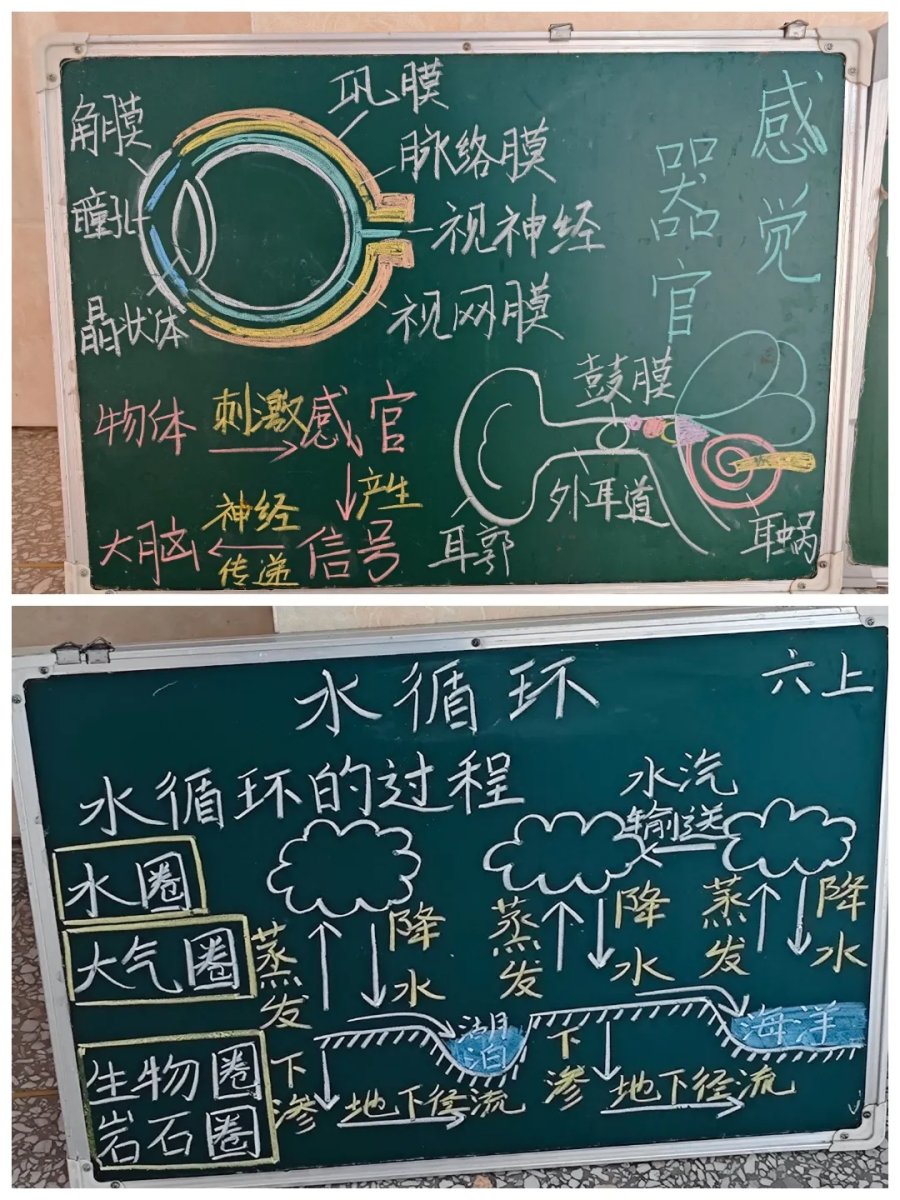 感觉
器官
角膜
瞳孔
晶状体
巩膜
脉络膜
视神经
视网膜
物体 刺激 感官
产生
大脑 神经 信号
传递
鼓膜
外耳道
耳郭
耳蜗
水循环
六上
水循环的过程
水汽
输送
水圈
大气圈
生物圈
岩石圈
蒸发
降水
蒸发
降水
蒸发
降水
湖泊
海洋
下渗
地下径流
下渗
地下径流